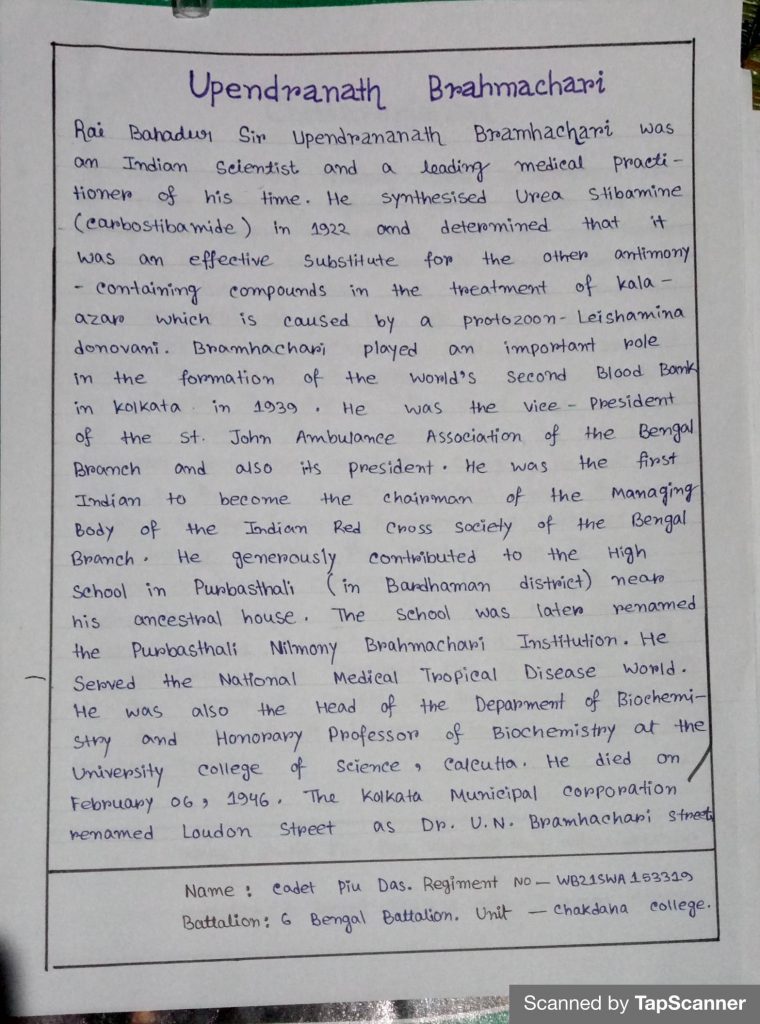 Upendranath Brahmachari
Rai Bahadur Sir Upendrananath Bramhachari was
an Indian Scientist and a leading medical practi-
tioner of his time. He synthesised Urea Stibamine
(carbostibamide) in 1922 and determined that it
was an effective substitute for the other antimony
- containing compounds in the treatment of kala-
azar which is caused by a protozoon- Leishamina
donovani. Bramhachari played an important role
in the formation of the world's second Blood Bank
in kolkata in 1939. He was the vice - President
of the St. John Ambulance Association of the Bengal
Branch and also its president. He was the first
Indian to become the chairman of the Managing
Body of the Indian Red Cross Society of the Bengal
Branch. He generously contributed to the High
School in Purbasthali (in Bardhaman district) near
his ancestral house. The school was later renamed
the Purbasthali Nilmony Brahmachari Institution. He
Served the National Medical Tropical Disease World.
He was also the Head of the Deparment of Biochemi-
stry and Honorary Professor of Biochemistry at the
University college of Science, Calcutta. He died on
February 06, 1946. The Kolkata Municipal corporation
renamed Loudon Street as Dr. U.N. Bramhachari street
Name: Cadet Piu Das. Regiment No - WB21SWA153319
Battalion: 6 Bengal Battalion. Unit - Chakdaha college.
Scanned by TapScanner